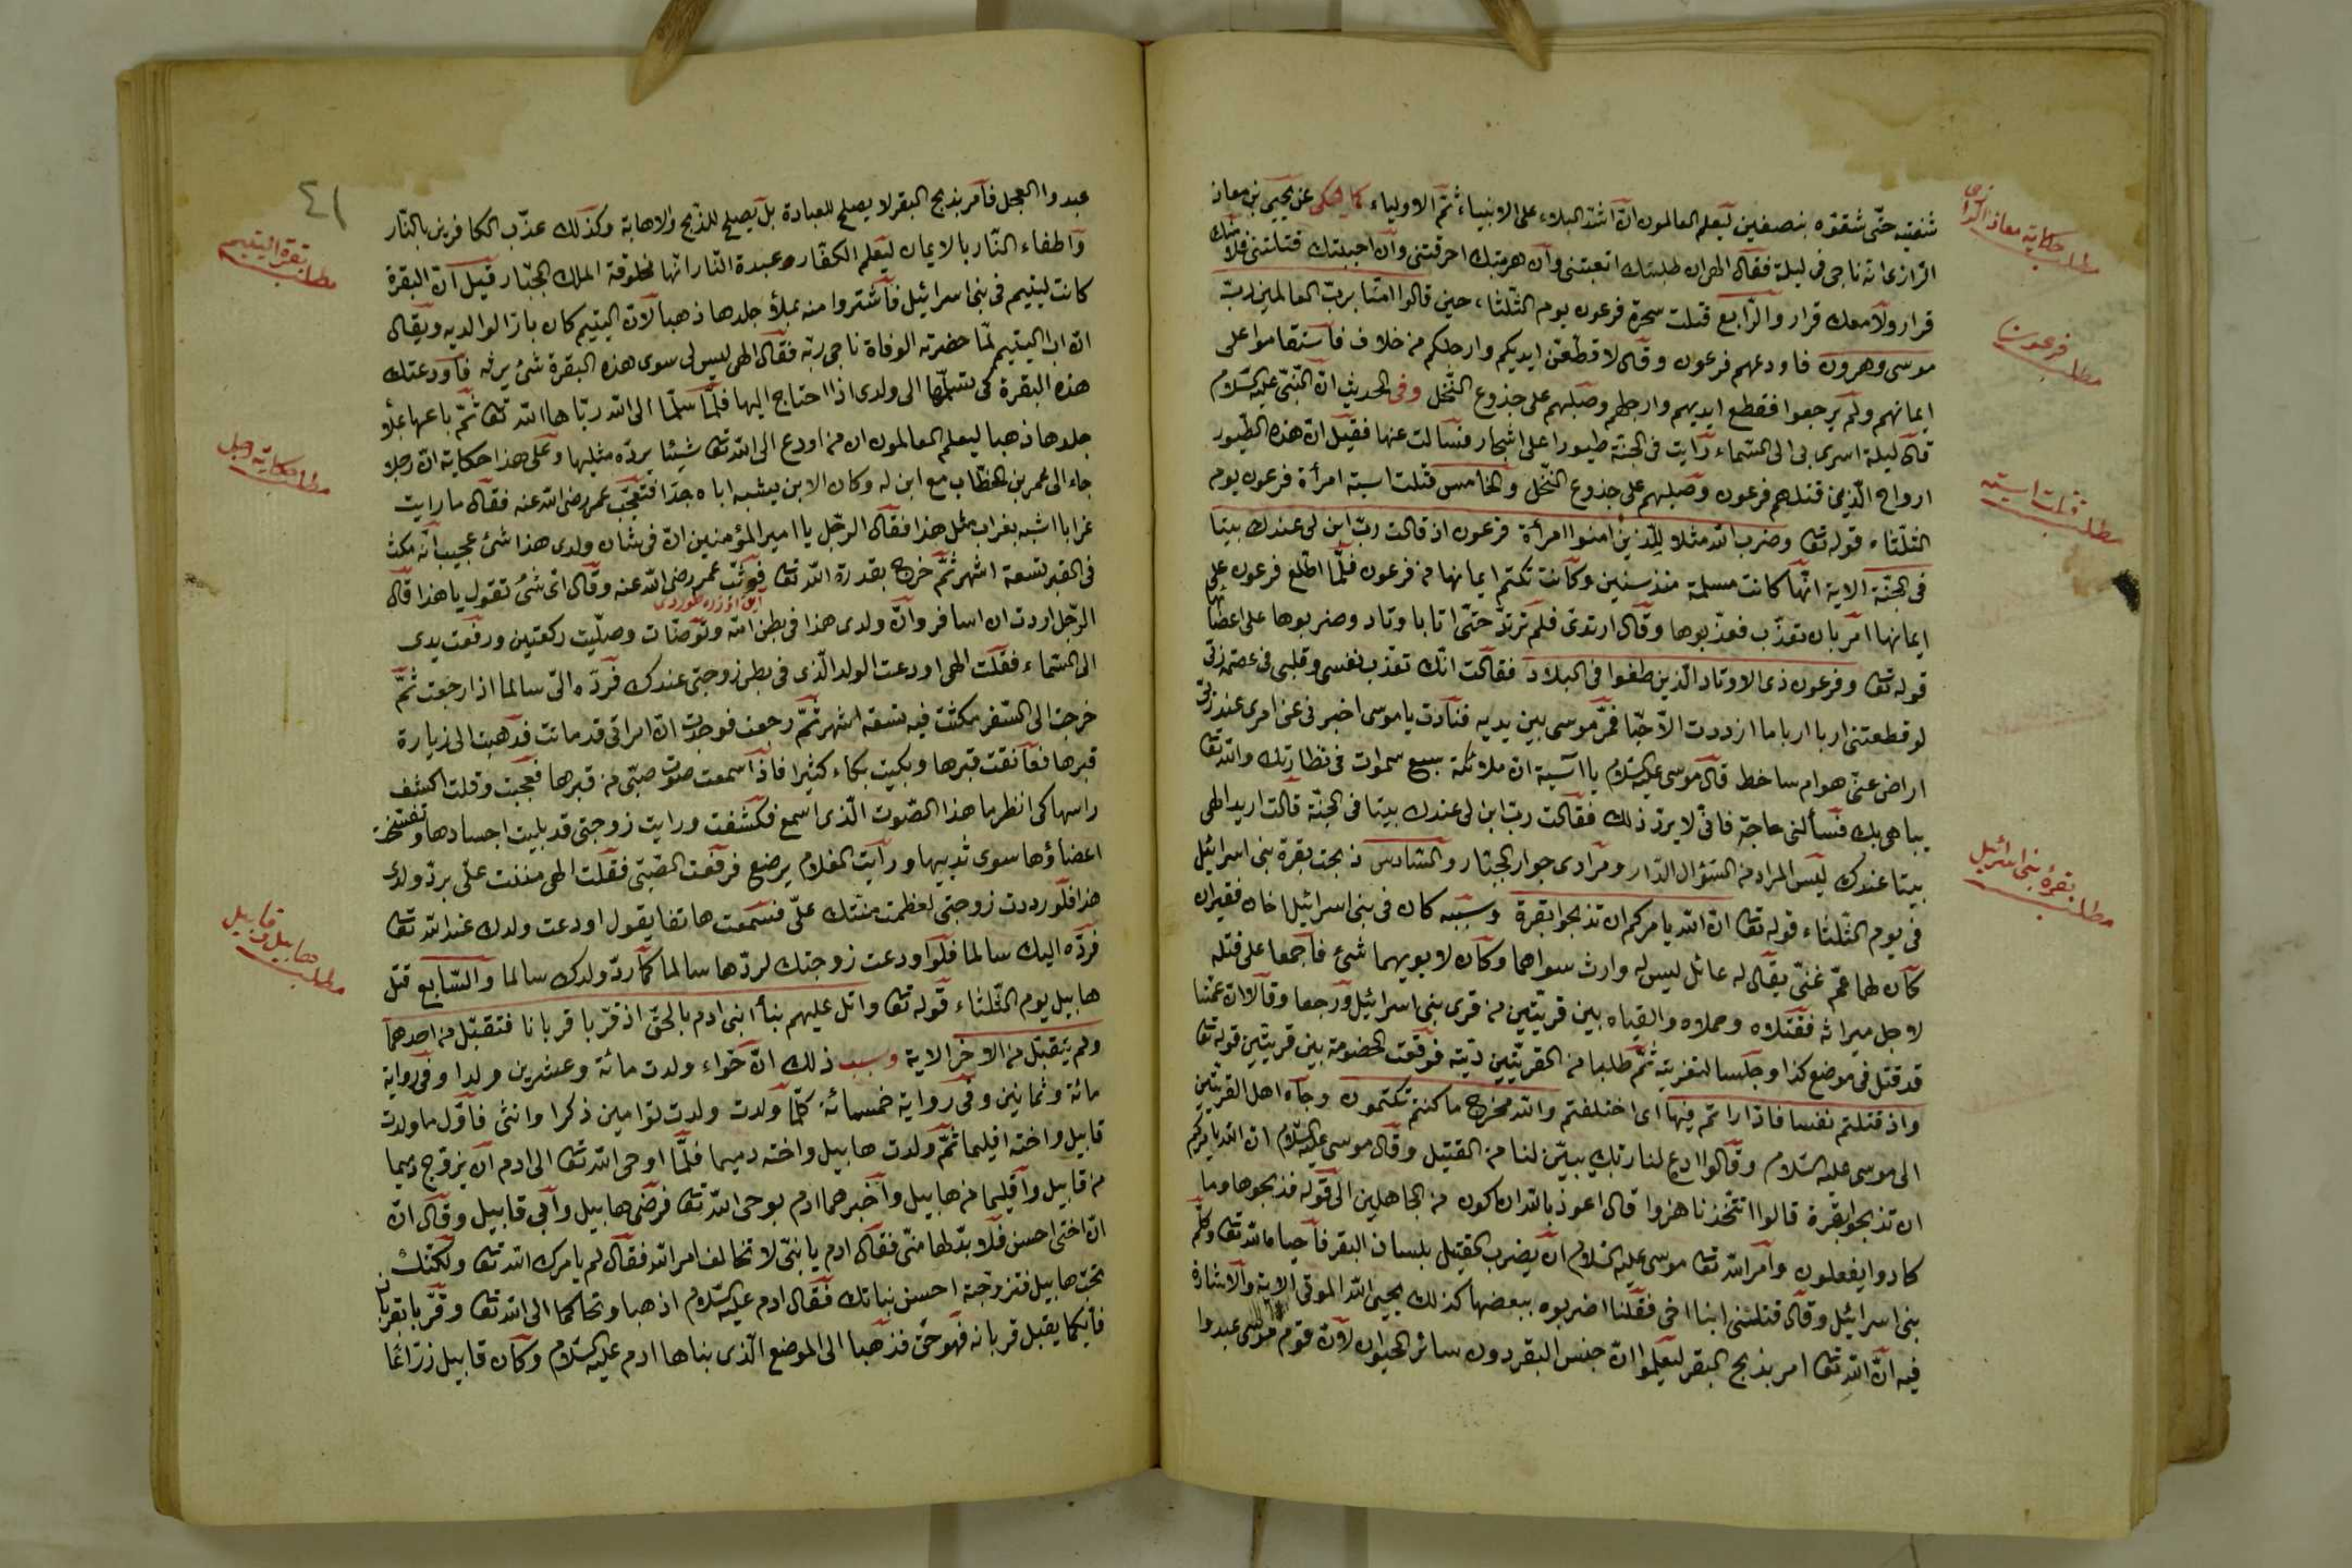 شفتيه حتّى شققوه بنصفين ليعلم العالمون انّ اشدّ البلاء على الانبياء ثمّ الاولياء كما حكى عن يحيى بن معاذ
الرازى انه ناجى فى ليلة فقال الهى ان طلبتك اتعبتنى وان هربتك احرقتنى وان احببتك قتلتنى فلا منك
قرار ولا معك قرار والرّابع قتلت سحرة فرعون يوم الثّلثاء حين قالوا امنّا بربّ العالمين ربّ
موسى وهرون فاودعهم فرعون وقال لاقطّعنّ ايديكم وارجلكم من خلاف فاستقاموا على
ايمانهم ولم يرجعوا فقطع ايديهم وارجلهم وصلبهم على جذوع النّخل وفى الحديث انّ النّبىّ عليه السّلام
قال ليلة اسرى بى الى السّماء رايت فى الجنة طيورا على اشجار فسالت عنها فقيل انّ هذه الطّيور
ارواح الّذين قتلهم فرعون وصلبهم على جذوع النّخل والخامس قتلت اسية امرأة فرعون يوم
الثلثاء قوله تعا وضرب الله مثلا للّذين امنوا امرأة فرعون اذ قالت ربّ ابن لى عندك بيتا
فى الجنّة الاية انّها كانت مسلمة منذ سنين وكانت تكتم ايمانها من فرعون فلمّا اطّلع فرعون على
ايمانها امر بان تعذّب فعذّبوها وقال ارتدى فلم ترتدّ حتّى اتا باوتاد وضربوها على اعضائها
قوله تعا وفرعون ذى الاوتاد الّذين طغوا فى البلاد فقالت انّك تعذّب نفسى وقلبى فى عصمة ربّى
لو قطعتنى اربا اربا ما ازددت الّا حبّا فمرّ موسى بين يديه فنادت يا موسى اخبرنى عن امرى عند ربّى
اراض عنّى هو ام ساخط قال موسى عليه السّلام يا اسية ان ملائكة سبع سموات فى نظارتك والله تعا
يباهى بك فسألنى حاجة فانّى لا يردّ ذلك فقالت ربّ ابن لى عندك بيتا فى الجنّة قالت اريد الهى
بيتا عندك ليس المراد من السّؤال الدّار ومرادى جوار الجبّار والسّادس ذبحت بقرة بنى اسرائيل
فى يوم الثّلثاء قوله تعا انّ الله يامركم ان تذبحوا بقرة وسببه كان فى بنى اسرائيل اخان فقيران
كان لهما عمّ غنىّ يقال له عائل ليس له وارث سواهما وكان لا يويهما شئ فاجمعا على قتله
لاجل ميراثه فقتلاه وحملاه والقياه بين قريتين من قرى بنى اسرائيل ورجعا وقالا انّ عمّنا
قد قتل فى موضع كذا وجلسا لتعزيته ثمّ طلبا من القريتين ديّته فوقعت الخصومة بين قريتين قوله تعا
واذ قتلتم نفسا فاذاراتم فيها اى اختلفتم والله مخرج ما كنتم تكتمون وجاء اهل القريتين
الى موسى عليه السّلام وقالوا ادع لنا ربّك يبيّن لنا من القتيل وقال موسى عليه السّلام ان الله يامركم
ان تذبحوا بقرة قالوا اتتّخذنا هزوا قال اعوذ بالله ان اكون من الجاهلين الى قوله فذبحوها وما
كادوا يفعلون وامر الله تعا موسى عليه السّلام ان يضرب القتيل بلسان البقر فاحياه الله تعا وكلّم
بنى اسرائيل وقال قتلتنى ابنا اخى فقلنا اضربوه ببعضها كذلك يحيى الله الموتى الاية والاشارة
فيه انّ الله تعا امر بذبح البقر ليعلموا انّ جنس البقر دون سائر الحيوان لانّ قوم موسى عبدوا
مطلب حكاية معاذ الرّازى
مطلب فرعون
مطلب قتلت اسية
مطلب بقرة بنى اسرائيل
٤١
عبدوا العجل فامر بذبح البقر لا يصلح للعبادة بل يصلح للذّبح والاهابة وكذلك عذّب الكافرين بالنّار
واطفاء النّار بالايمان ليعلم الكفّار وعبدة النّار انّها مخلوقة الملك الجبّار قيل انّ البقرة
كانت ليتيم فى بنى اسرائيل فاشتروا منه بملأ جلدها ذهبا لانّ اليتيم كان بارّا لوالديه ويقال
انّ اب اليتيم لمّا حضرته الوفاة ناجى ربّه فقال الهى ليس لى سوى هذه البقرة شئ يرثه فاودعتك
هذه البقرة كى تسلّمها الى ولدى اذا احتاج اليها فلمّا سلّما الى الله ربّاها الله تعا ثمّ باعها بملأ
جلدها ذهبا ليعلم العالمون ان من اودع الى الله تعا شيئا يردّه مثليها وعلى هذا حكاية انّ رجلا
جاء الى عمر بن الخطّاب مع ابن له وكان الابن يشبه اباه جدّا فتعجّب عمر رضى الله عنه فقال ما رايت
غرابا اشبه بغراب مثل هذا فقال الرّجل يا امير المؤمنين انّ فى شان ولدى هذا شئ عجيب انّه مكث
فى القبر تسعة اشهر ثمّ خرج بقدرة الله تعا فوثب عمر رضى الله عنه وقال اىّ شئ تقول يا هذا قال
الرّجل اردت ان اسافر وانّ ولدى هذا فى بطن امّه وتوضّات وصلّيت ركعتين ورفعت يدى
الى السّماء فقلت الهى اودعت الولد الّذى فى بطن زوجتى عندك فردّه الىّ سالما اذا رجعت ثمّ
خرجت الى السّفر مكثت فيه تسعة اشهر ثمّ رجعت فوجدت انّ امراتى قد ماتت فذهبت الى زيارة
قبرها فعانقت قبرها وبكيت بكاء كثيرا فاذا سمعت صوت صبىّ من قبرها فعجبت وقلت اكشف
راسها كى انظر ما هذا الصّوت الّذى اسمع فكشفت ورايت زوجتى قد بليت اجسادها وتفسّخت
اعضاؤها سوى ثدييها ورايت الغلام يرضع فرفعت الصّبىّ فقلت الهى مننت علىّ بردّ ولدى
هذا فلو رددت زوجتى لعظمت منّتك علىّ فسمعت هاتفا يقول اودعت ولدك عند الله تعا
فردّه اليك سالما فلو اودعت زوجتك لردّها سالما كما ردّ ولدك سالما والسّابع قتل
هابيل يوم الثّلثاء قوله تعا واتل عليهم نبأ ابنى ادم بالحقّ اذ قرّبا قربانا فتقبّل من احدهما
ولم يتقبّل من الاخر الاية وسبب ذلك انّ حوّاء ولدت مائة وعشرين ولدا وفى رواية
مائة وثمانين وفى رواية خمسمائة كلّما ولدت ولدت توامين ذكرا وانثى فاوّل ما ولدت
قابيل واخته اقليما ثمّ ولدت هابيل واخته دميما فلمّا اوحى الله تعا الى ادم ان يزوّج دميما
من قابيل واقليما من هابيل واخبرهما ادم بوحى الله تعا فرضى هابيل وابى قابيل وقال انّ
انّ اختى احسن فلا بدّ لها منّى فقال ادم يا بنىّ لا تخالف امر الله فقال لم يامرك الله تعا ولكنّك
تحبّ هابيل فتزوّجه احسن بناتك فقال ادم عليه السّلام اذهبا وتحاكما الى الله تعا وقرّبا بقربان
فايّكما يقبل قربانه فهو حقّ فذهبا الى الموضع الّذى بناها ادم عليه السّلام وكان قابيل زرّاعا
مطلب بقرة اليتيم
مطلب حكاية رجل
مطلب هابيل وقابيل